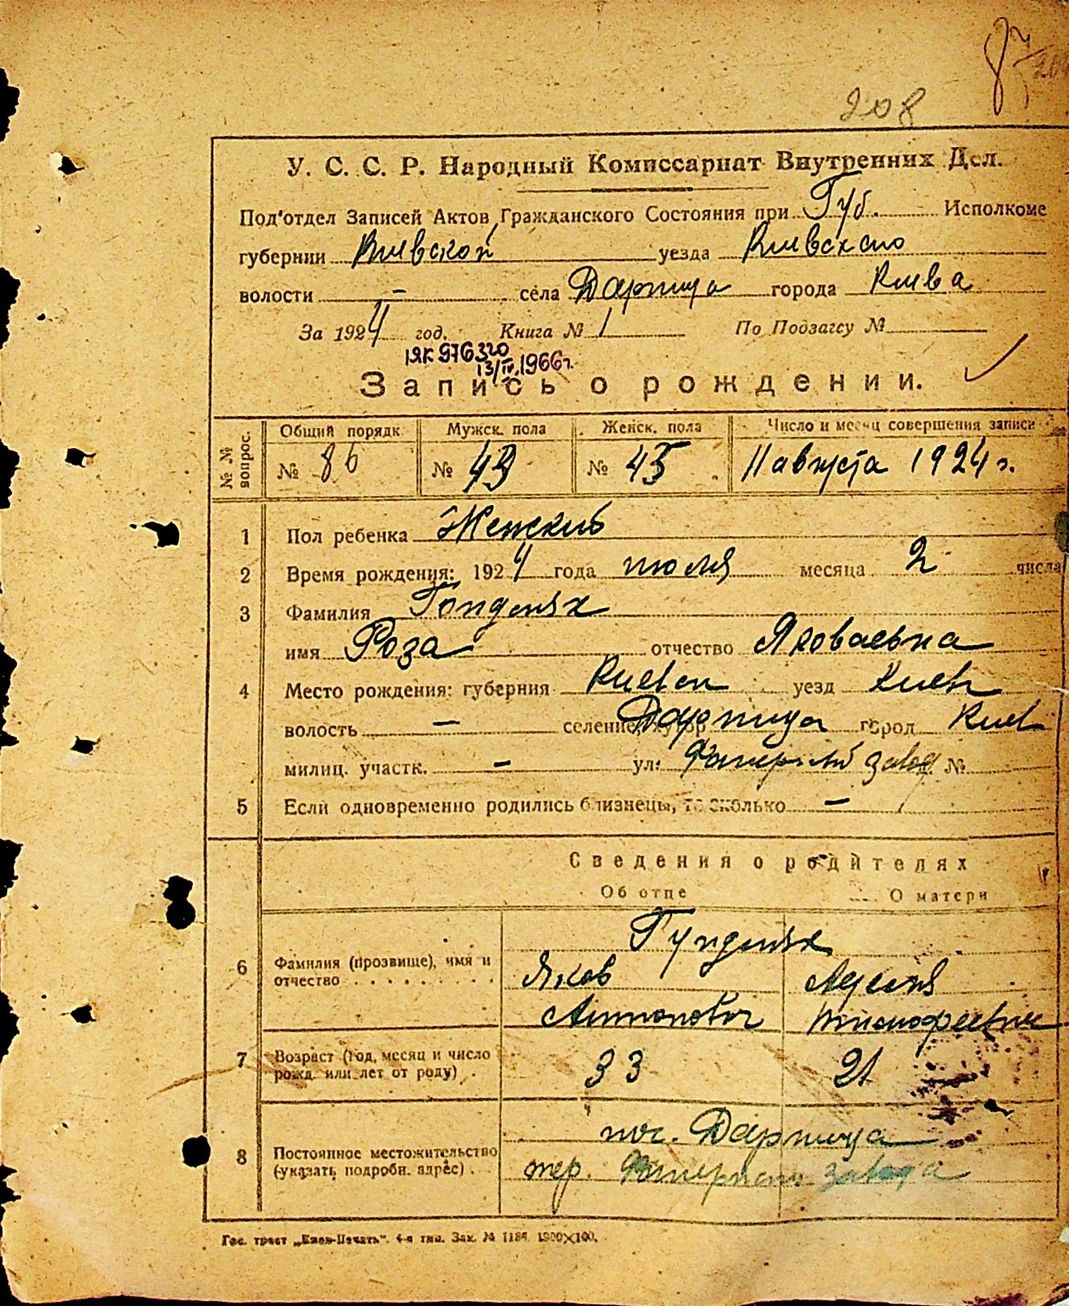 208
У. С. С. Р. Народный Комиссариат Внутренних Дел.
Под'отдел Записей Актов Гражданского Состояния при Губ. Исполкоме
губернии Киевской уезда Киевского
волости - села Дарница города Киева
За 1924 год. Книга № 1 По Подзагсу №
ІЯК 976320
13/IV 1966г.
Запись о рождении.
№ № вопрос. Общий порядк. Мужск. пола Женск. пола Число и месяц совершения записи
№ 86 № 43 № 45 11 августа 1924 г.
1 Пол ребенка Женский
2 Время рождения: 1924 года июля месяца 2 числа
3 Фамилия
имя Роза отчество Яковлевна
4 Место рождения: губерния Киевск уезд Киев
волость - селение, хутор Дарница город Киев
милиц. участк. - ул. Фанерный завод №
5 Если одновременно родились близнецы, то сколько -
Сведения о родителях
Об отце О матери
6 Фамилия (прозвище), имя и
отчество
Яков
Антонович Тимофеевна
7 Возраст (год, месяц и число
рожд. или лет от роду) 33 21
8 Постоянное местожительство
(указать подробн. адрес)
пос. Дарница
тер. Фанерного завода
Гос. трест „Киев-Печать". 4-я тип. Зак. № 1184. 1300×100.